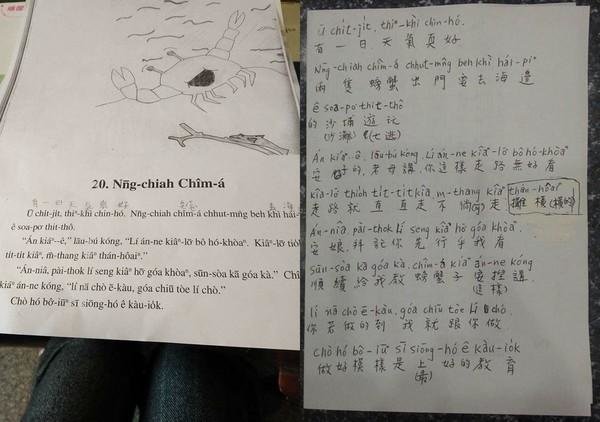 20. Nn̄g-chiah Chîm-á
有一日天氣真好
Ū chi̍t-ji̍t, thiⁿ-khì chin-hó. Nn̄g-chiah chîm-á chhut-mn̂g beh khì hái-
ê soa-po͘ thit-thô.
"Án kiáⁿ--ê," lāu-bú kóng, "Lí án-ne kiâⁿ-lō͘ bô hó-khòaⁿ. Kiâⁿ-lō͘ tio̍
ti̍t-ti̍t kiâⁿ, m̄-thang kiâⁿ thán-hôaiⁿ."
"Án-niâ, pài-thok lí seng kiâⁿ hō͘ góa khòaⁿ, sūn-sòa kā góa kà." Chî
kiáⁿ án-ne kóng, "lí nā chò ē-kàu, góa chiū tòe lí chò."
Chò hó bô-iūⁿ sī siōng-hó ê kàu-io̍k.
Ū chi̍t-ji̍t, thiⁿ-khì chin-hó.
有一日天氣真好
Nn̄g-chiah chîm-á chhut-mn̂g beh khì hái-piⁿ
兩隻螃蟹出門要去海邊
ê soa-po͘ thit-thô
的沙埔遊玩
(沙灘) (𨑨迌)
Án kiáⁿ-ê, lāu-bú kóng, Lí án-ne kiâⁿ-lō͘ bô hó-khòaⁿ
的,老母講,你這樣走路無好看
kiâ-lō͘ ti̍t-ti̍t kiâ m-thang kiâⁿ thán-hôaiⁿ
走路就直直走不倘走 橫(橫的)
Án-niâ, pài-thok lí seng kiâⁿ hō͘ góa khòaⁿ,
安娘拜託你先行乎我看
sūn-sòa kā góa kà. chîm-á kiáⁿ án-ne kóng
順續給我教螃蟹子安捏講
(這樣)
lí nā chò ē-kàu, góa chiū tòe lí chò.
你若做的到 我就跟你做
Chò hó bô-iūⁿ sī siōng-hó ê kàu-io̍k
做好模樣是上好的教育
(最)